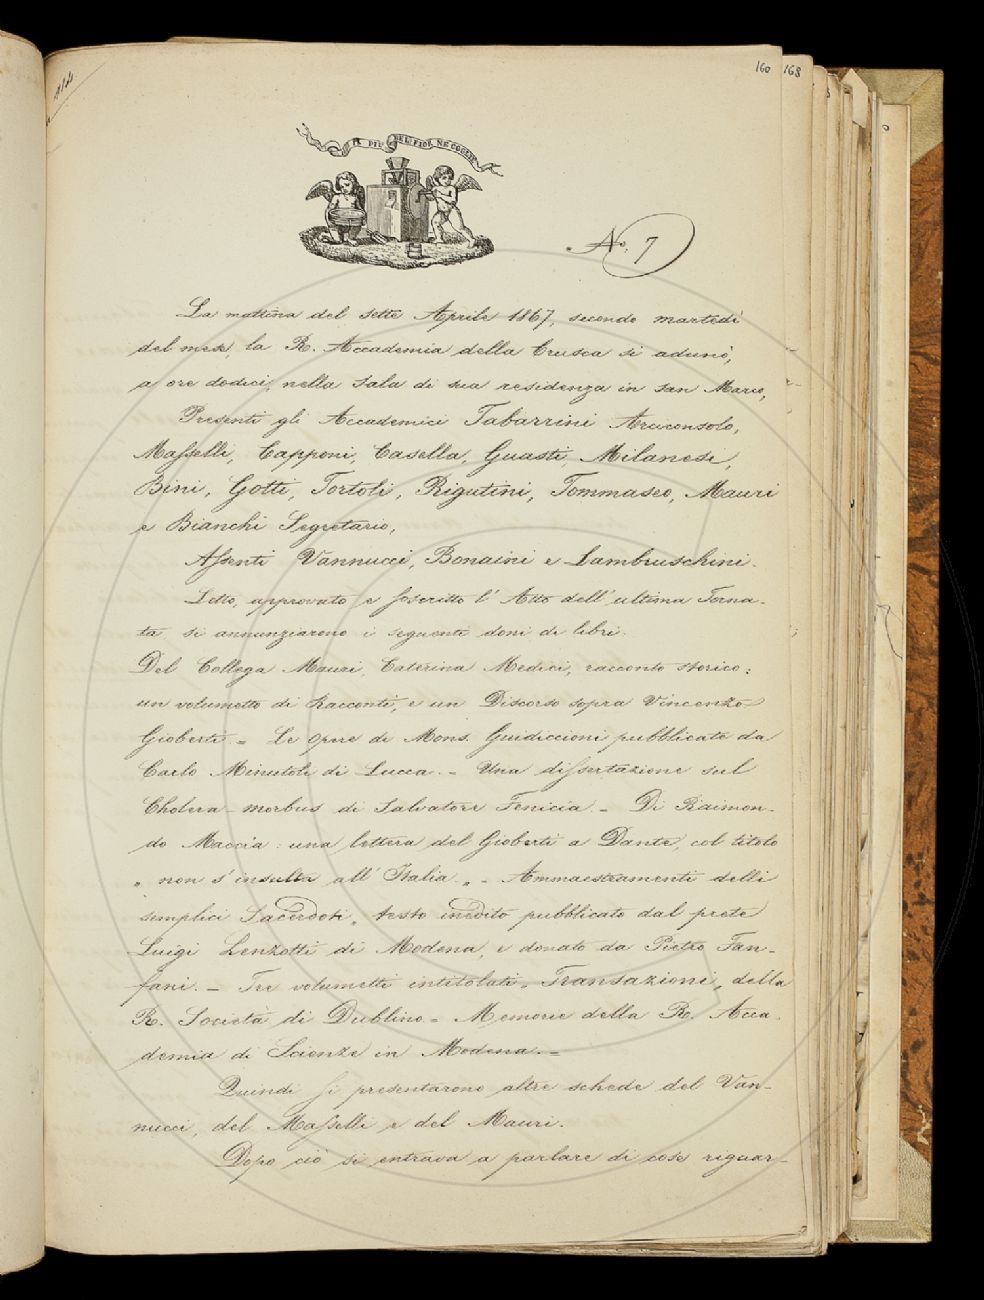 160
168
IL PIÙ BEL FIOR NE COGLIE
No. 7
La mattina del sette Aprile 1867, secondo martedì
del mese, la R. Accademia della Crusca si adunò,
a ore dodici, nella sala di sua residenza in san Marco,
Presenti gli Accademici Tabarrini Arciconsolo,
Masselli, Capponi, Casella, Guasti, Milanesi,
Bini, Gotti, Tortoli, Rigutini, Tommaseo, Mauri
e Bianchi Segretario,
Assenti Vannucci, Bonaini e Lambruschini.
Letto, approvato e soscritto l'Atto dell'ultima Torna-
ta si annunziarono i seguenti doni di libri.
Del Collega Mauri, Caterina Medici, racconto storico:
un volumetto di Racconti, e un Discorso sopra Vincenzo
Gioberti. = Le Opere di Mons. Guidiccioni pubblicate da
Carlo Minutoli di Lucca. - Una dissertazione sul
Cholera-morbus di Salvatore Fenicia. - Di Raimon-
do Maccia: una lettera del Gioberti a Dante, col titolo
„ non s'insulta all'Italia „ - Ammaestramenti delli
semplici Sacerdoti „ testo inedito pubblicato dal prete
Luigi Lenzotti di Modena, e donato da Pietro Fan-
fani. - Tre volumetti intitolati „ Transazioni „ della
R. Società di Dublino = Memorie della R. Acca-
demia di Scienze in Modena. =
Quindi si presentarono altre schede del Van-
nucci, del Masselli e del Mauri.
Dopo ciò si entrava a parlare di cose riguar-